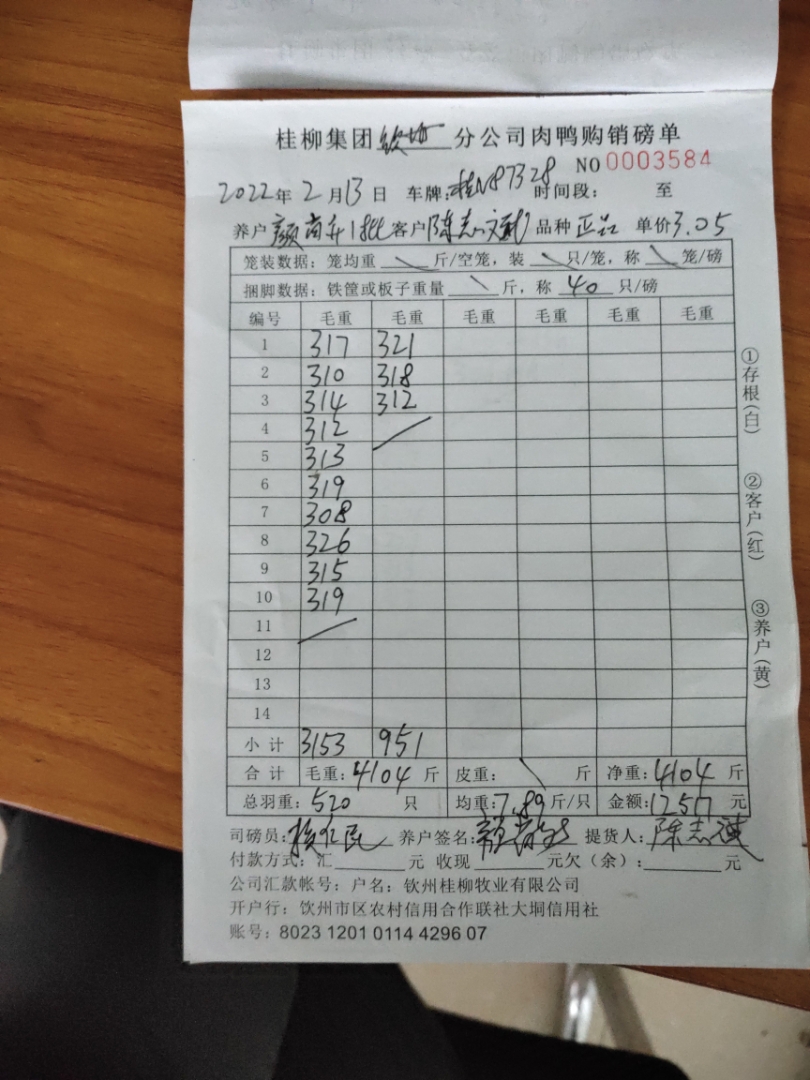 桂柳集团钦州分公司肉鸭购销磅单
NO 0003584
2022年2月13日 车牌:桂N87328 时间段: 至
养户颜尚升1批客户陈志斌 品种正品 单价3.05
笼装数据:笼均重 \ 斤/空笼,装 \ 只/笼,称 \ 笼/磅
捆脚数据:铁筐或板子重量 \ 斤,称 40 只/磅
编号 毛重 毛重 毛重 毛重 毛重 毛重
1 317 321
2 310 318
3 314 312
4 312
5 313
6 319
7 308
8 326
9 315
10 319
11
12
13
14
小计 3153 951
合计 毛重:4104斤 皮重: \ 斤 净重:4104斤
总羽重:520 只 均重:7.89斤/只 金额:12517元
司磅员: 养户签名: 提货人:陈志斌
付款方式:汇 元 收现 元欠(余): 元
公司汇款帐号:户名:钦州桂柳牧业有限公司
开户行:饮州市区农村信用合作联社大垌信用社
账号:8023 1201 0114 4296 07
①存根(白)
②客户(红)
③养户(黄)